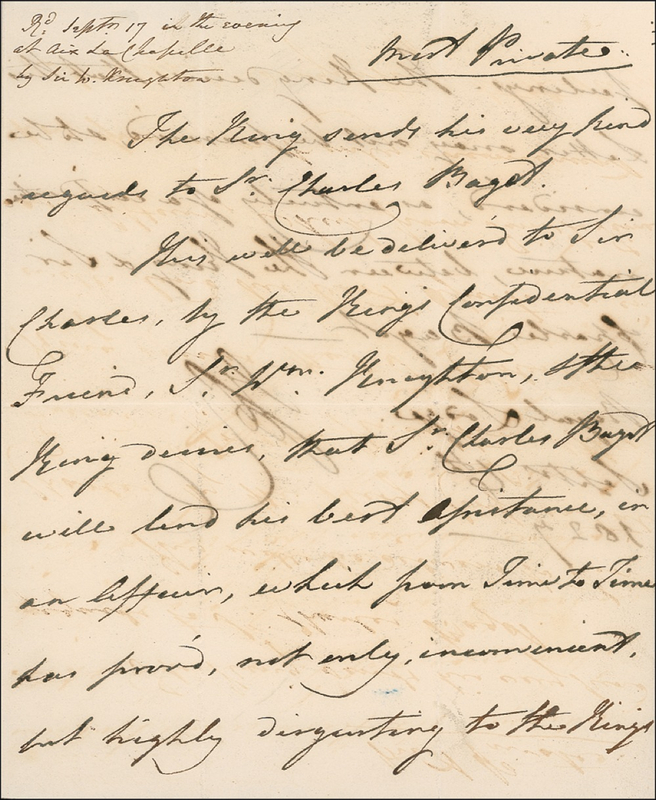 Rd. Septr. 17 in the evening
at Aix La Chapelle
by Sir W. Knighton
Most Private.
The King sends his very kind
regards to Sr. Charles Bagot.
This will be deliver'd to Sir
Charles, by the King's Confidential
Friend, Sr. Wm. Knighton, & the
King desires, that Sr. Charles Bagot
will lend his best Assistance, in
an Affair, which from Time to Time
has prov'd, not only, inconvenient,
but highly disgusting to the King's